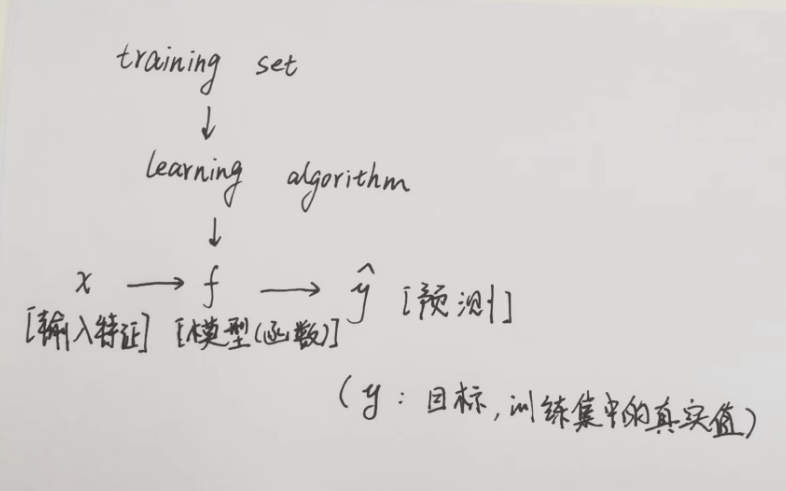 training set
↓
learning algorithm
↓
x → f → ŷ [预测]
[输入特征] [模型(函数)]
(y: 目标, 训练集中的真实值)